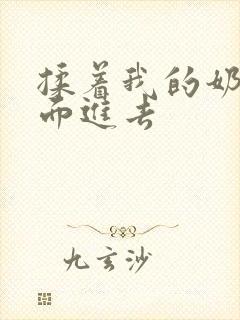 揉着我的奶
而進去
九玄沙